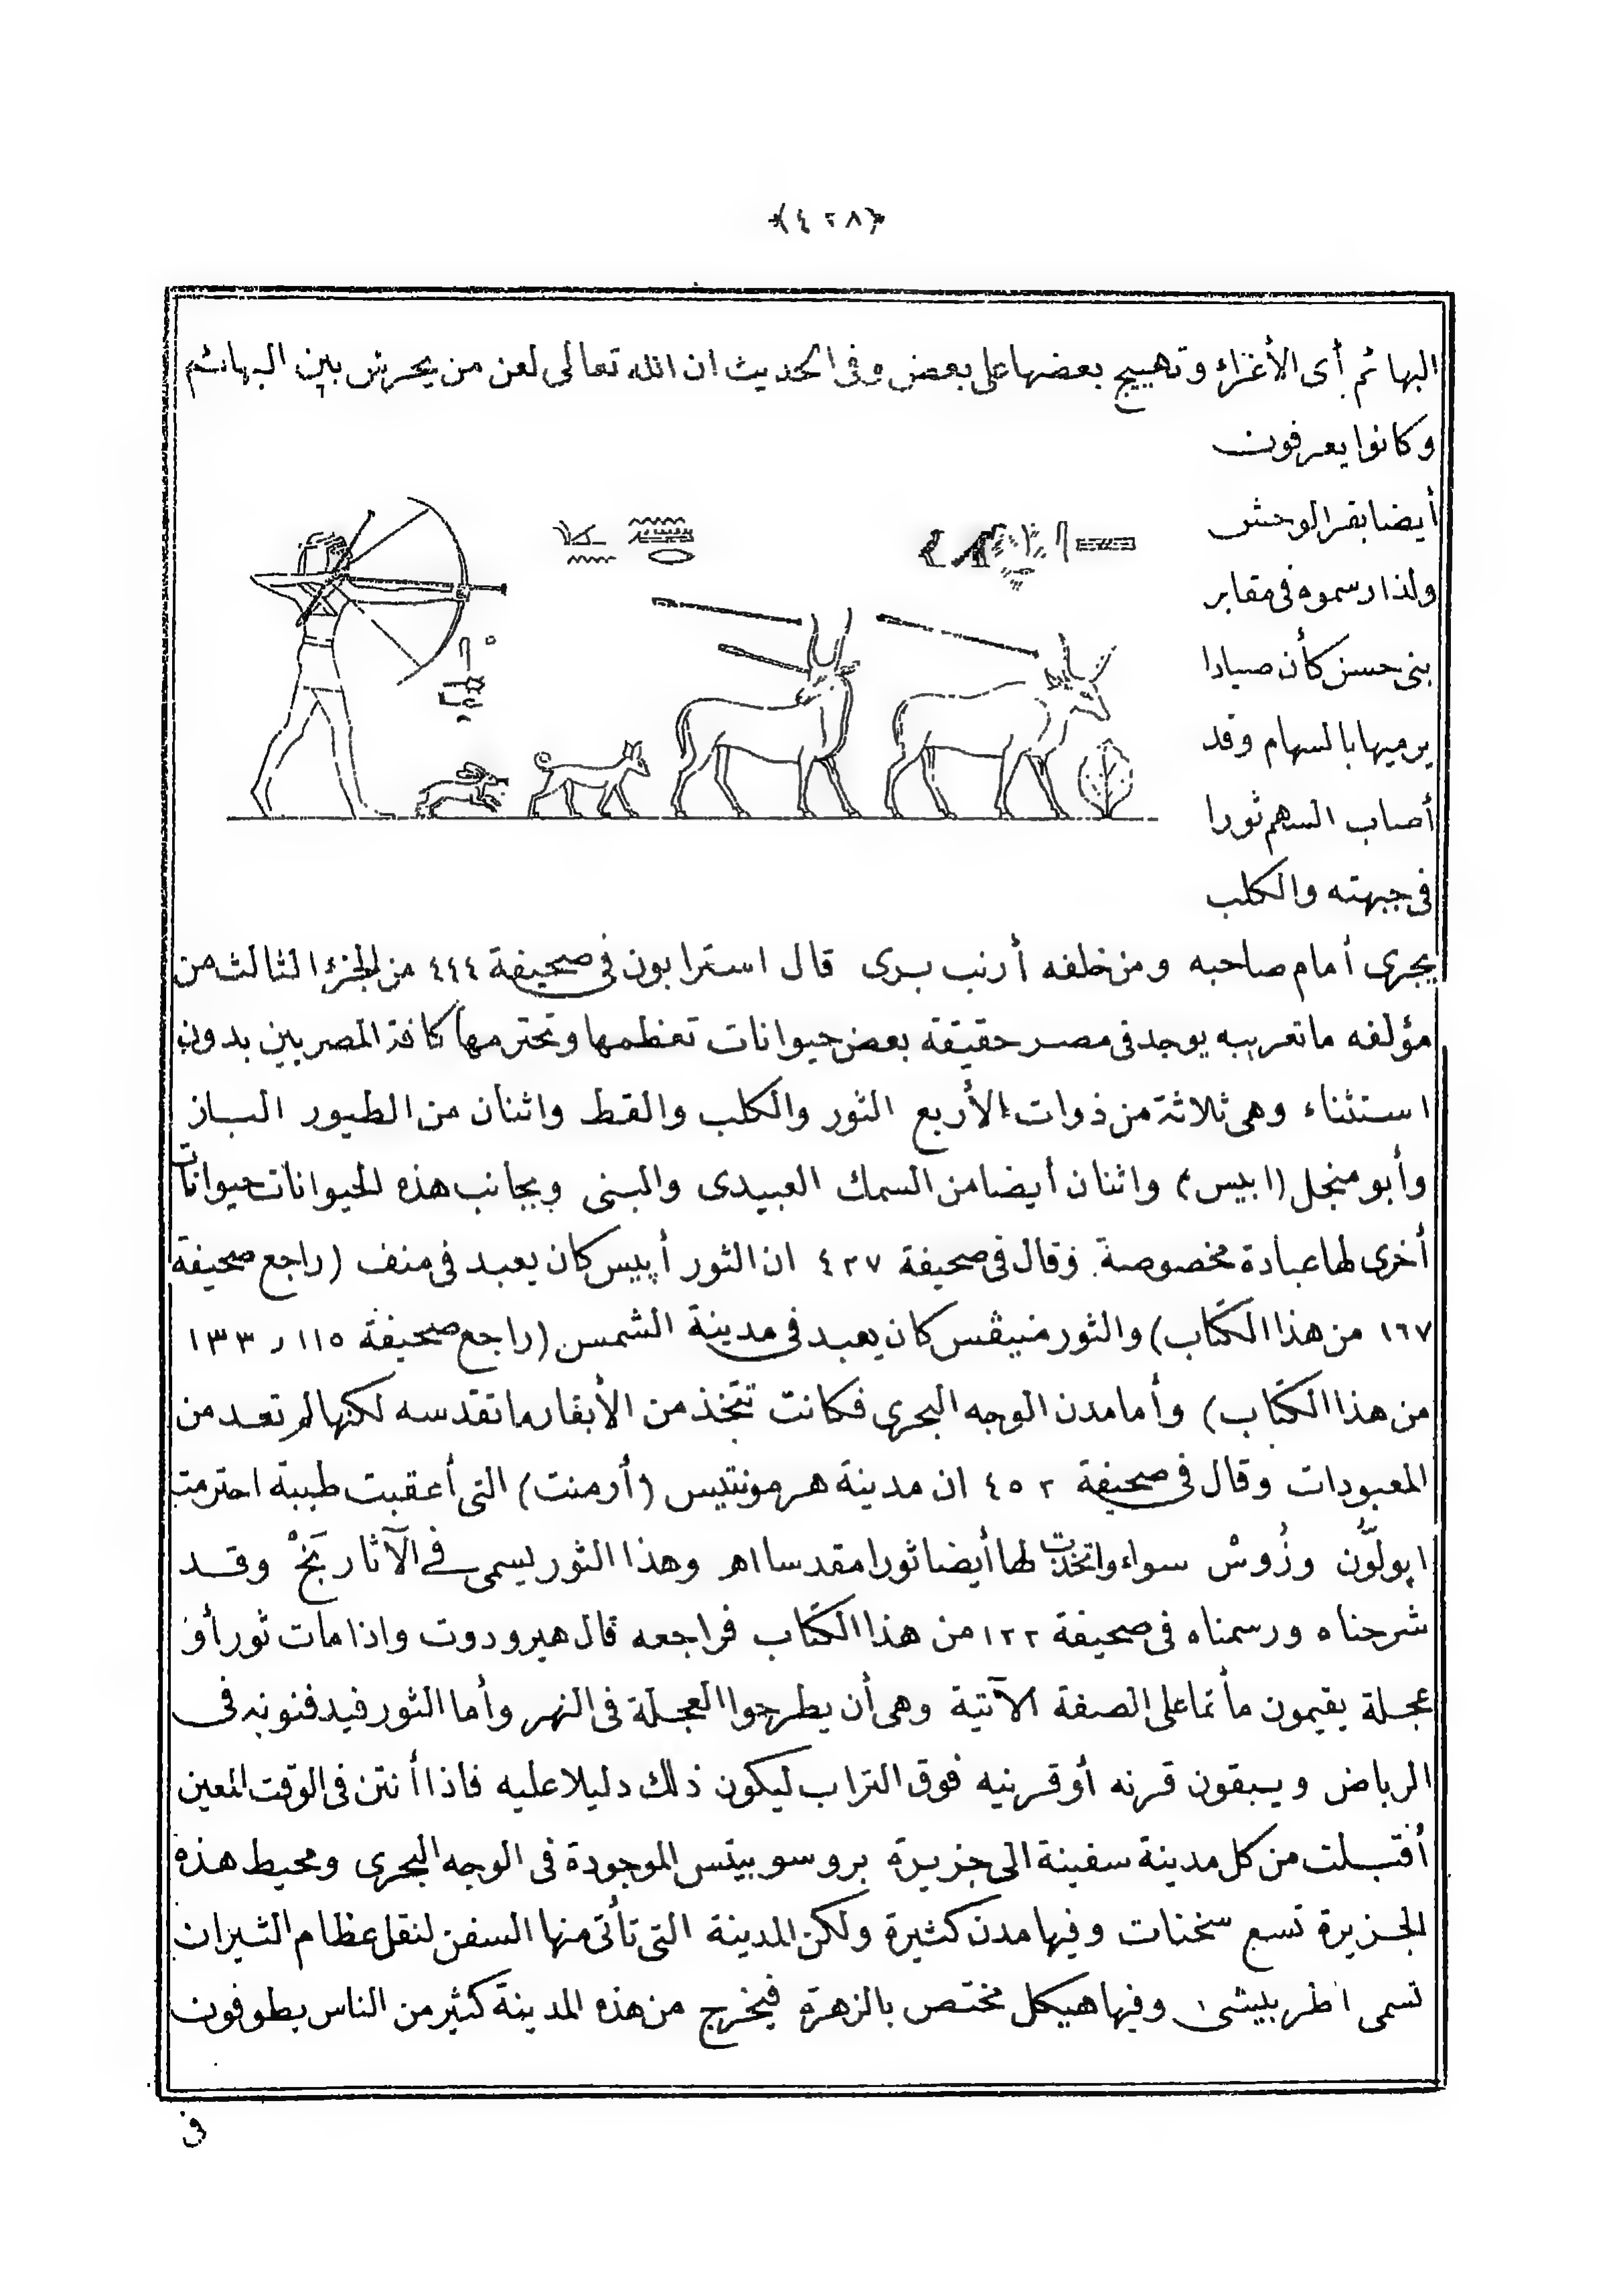 ﴿٤٢٨﴾
البهائم أى الأغراء وتهييج بعضها على بعض وفى الحديث ان الله تعالى لعن من يحرش بين البهائم
وكانوا يعرفون
أيضا بقر الوحش
ولذا رسموه فى مقابر
بنى حسن كأن صيادا
يرميها بالسهام وقد
أصاب السهم ثورا
فى جبهته والكلب
يجرى أمام صاحبه ومن خلفه أرنب برى قال استرابون فى صحيفة ٤٤٤ من الجزء الثالث من
مؤلفه ما تعريبه يوجد فى مصر حقيقة بعض حيوانات تعظمها وتحترمها كافة المصريين بدون
استثناء وهى ثلاثة من ذوات الأربع الثور والكلب والقط واثنان من الطيور الباز
وأبو منجل (ابيس) واثنان أيضا من السمك العبيدى والبنى وبجانب هذه الحيوانات حيوانات
أخرى لها عبادة مخصوصة وقال فى صحيفة ٤٢٧ ان الثور أپيس كان يعبد فى منف (راجع صحيفة
١٦٧ من هذا الكتاب) والثور منيڤس كان يعبد فى مدينة الشمس (راجع صحيفة ١١٥ ر ١٣٣
من هذا الكتاب) وأما مدن الوجه البحرى فكانت تتخذ من الأبقار ما تقدسه لكنها لم تعد من
المعبودات وقال فى صحيفة ٤٥٢ ان مدينة هرمونتيس (أرمنت) التى أعقبت طيبة احترمت
اپولّون وزُوسْ سواء واتخذت لها أيضا ثورا مقدسا اهـ وهذا الثور يسمى فى الآثار بَخْ وقد
شرحناه ورسمناه فى صحيفة ١٢٢ من هذا الكتاب فراجعه قال هيرودوت واذا مات ثور أو
عجلة يقيمون مأتما على الصفة الآتية وهى أن يطرحوا العجلة فى النهر وأما الثور فيدفنونه فى
الرباض ويبقون قرنه أو قرنيه فوق التراب ليكون ذلك دليلا عليه فاذا أنتن فى الوقت المعين
أقبلت من كل مدينة سفينة الى جزيرة بروسوبيتس الموجودة فى الوجه البحرى ومحيط هذه
الجزيرة تسع سخنات وفيها مدن كثيرة ولكن المدينة التى تأتى منها السفن لنقل عظام الثيران
تسمى اطربيشى وفيها هيكل مختص بالزهرة فيخرج من هذه المدينة كثير من الناس يطوفون
فى